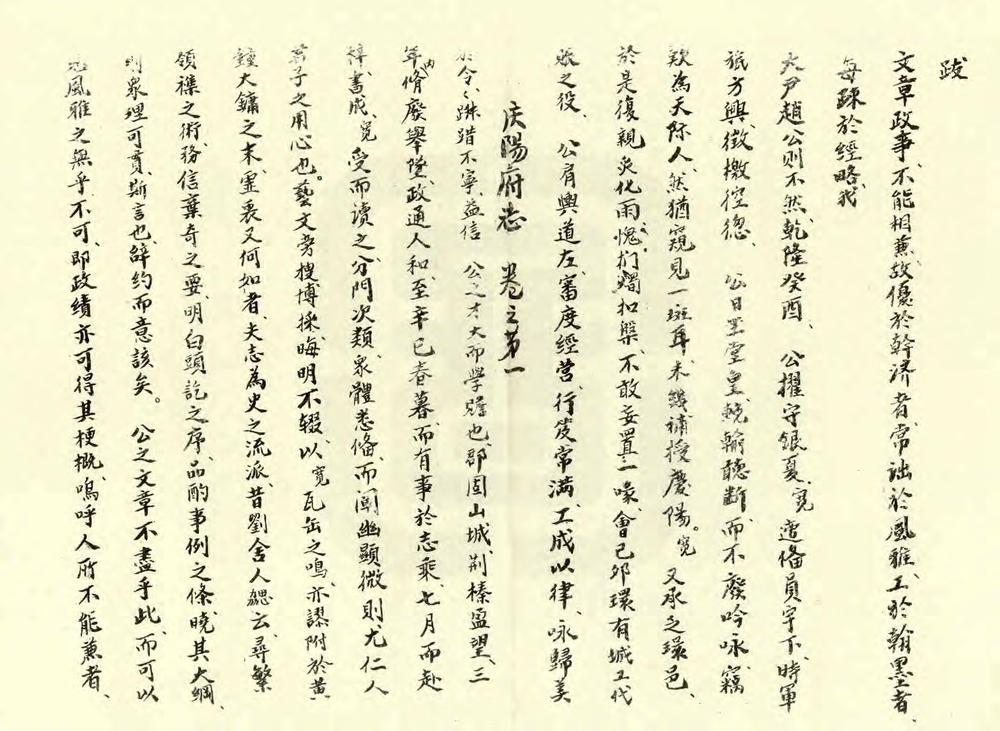 跋
文章政事、不能相兼、故優於幹済者、常诎於風雅、工於翰墨者、
每踈於經略、我
大尹趙公则不然、乾隆癸酉、公擢守银夏、寛遭俻員宇下、時軍
旅方興、徵檄倥偬、公日坐堂皇、輓輸聽断、而不廢吟咏、竊
欵為天际人、然猶窺見一斑耳、未幾補授慶陽。寛又承乏環邑、
於是復親炙化雨、愧捫燭扣槃、不敢妄置一喙、會己夘環有城工代
赈之役、公肩輿道左、審度經营、行笈常满、工成以律、咏歸美
庆陽府志 卷之第一
於今、踈踖不寧、益信 公之才大而學贍也、郡固山城、荆榛盈望、三
年内脩廢舉墜、政通人和、至辛已春暮、而有事於志乘、七月而赴
梓、書成、寛受而读之、分門次類、眾體悉俻、而闡幽顯微、则尤仁人
君子之用心也。藝文旁搜博採、晦明不辍、以寛瓦缶之鳴、亦謬附於黄
鐘大鏞之末、霊裏又何如者、夫志為史之流派、昔劉舍人勰云、尋繁
領襍之術、務信棄奇之要、明白頭訖之序、品酌事例之條、曉其大綱、
则眾理可貫、斯言也、辞约而意該矣。公之文章不盡乎此、而可以
見風雅之無乎不可、即政績亦可得其梗概、嗚呼、人所不能兼者、